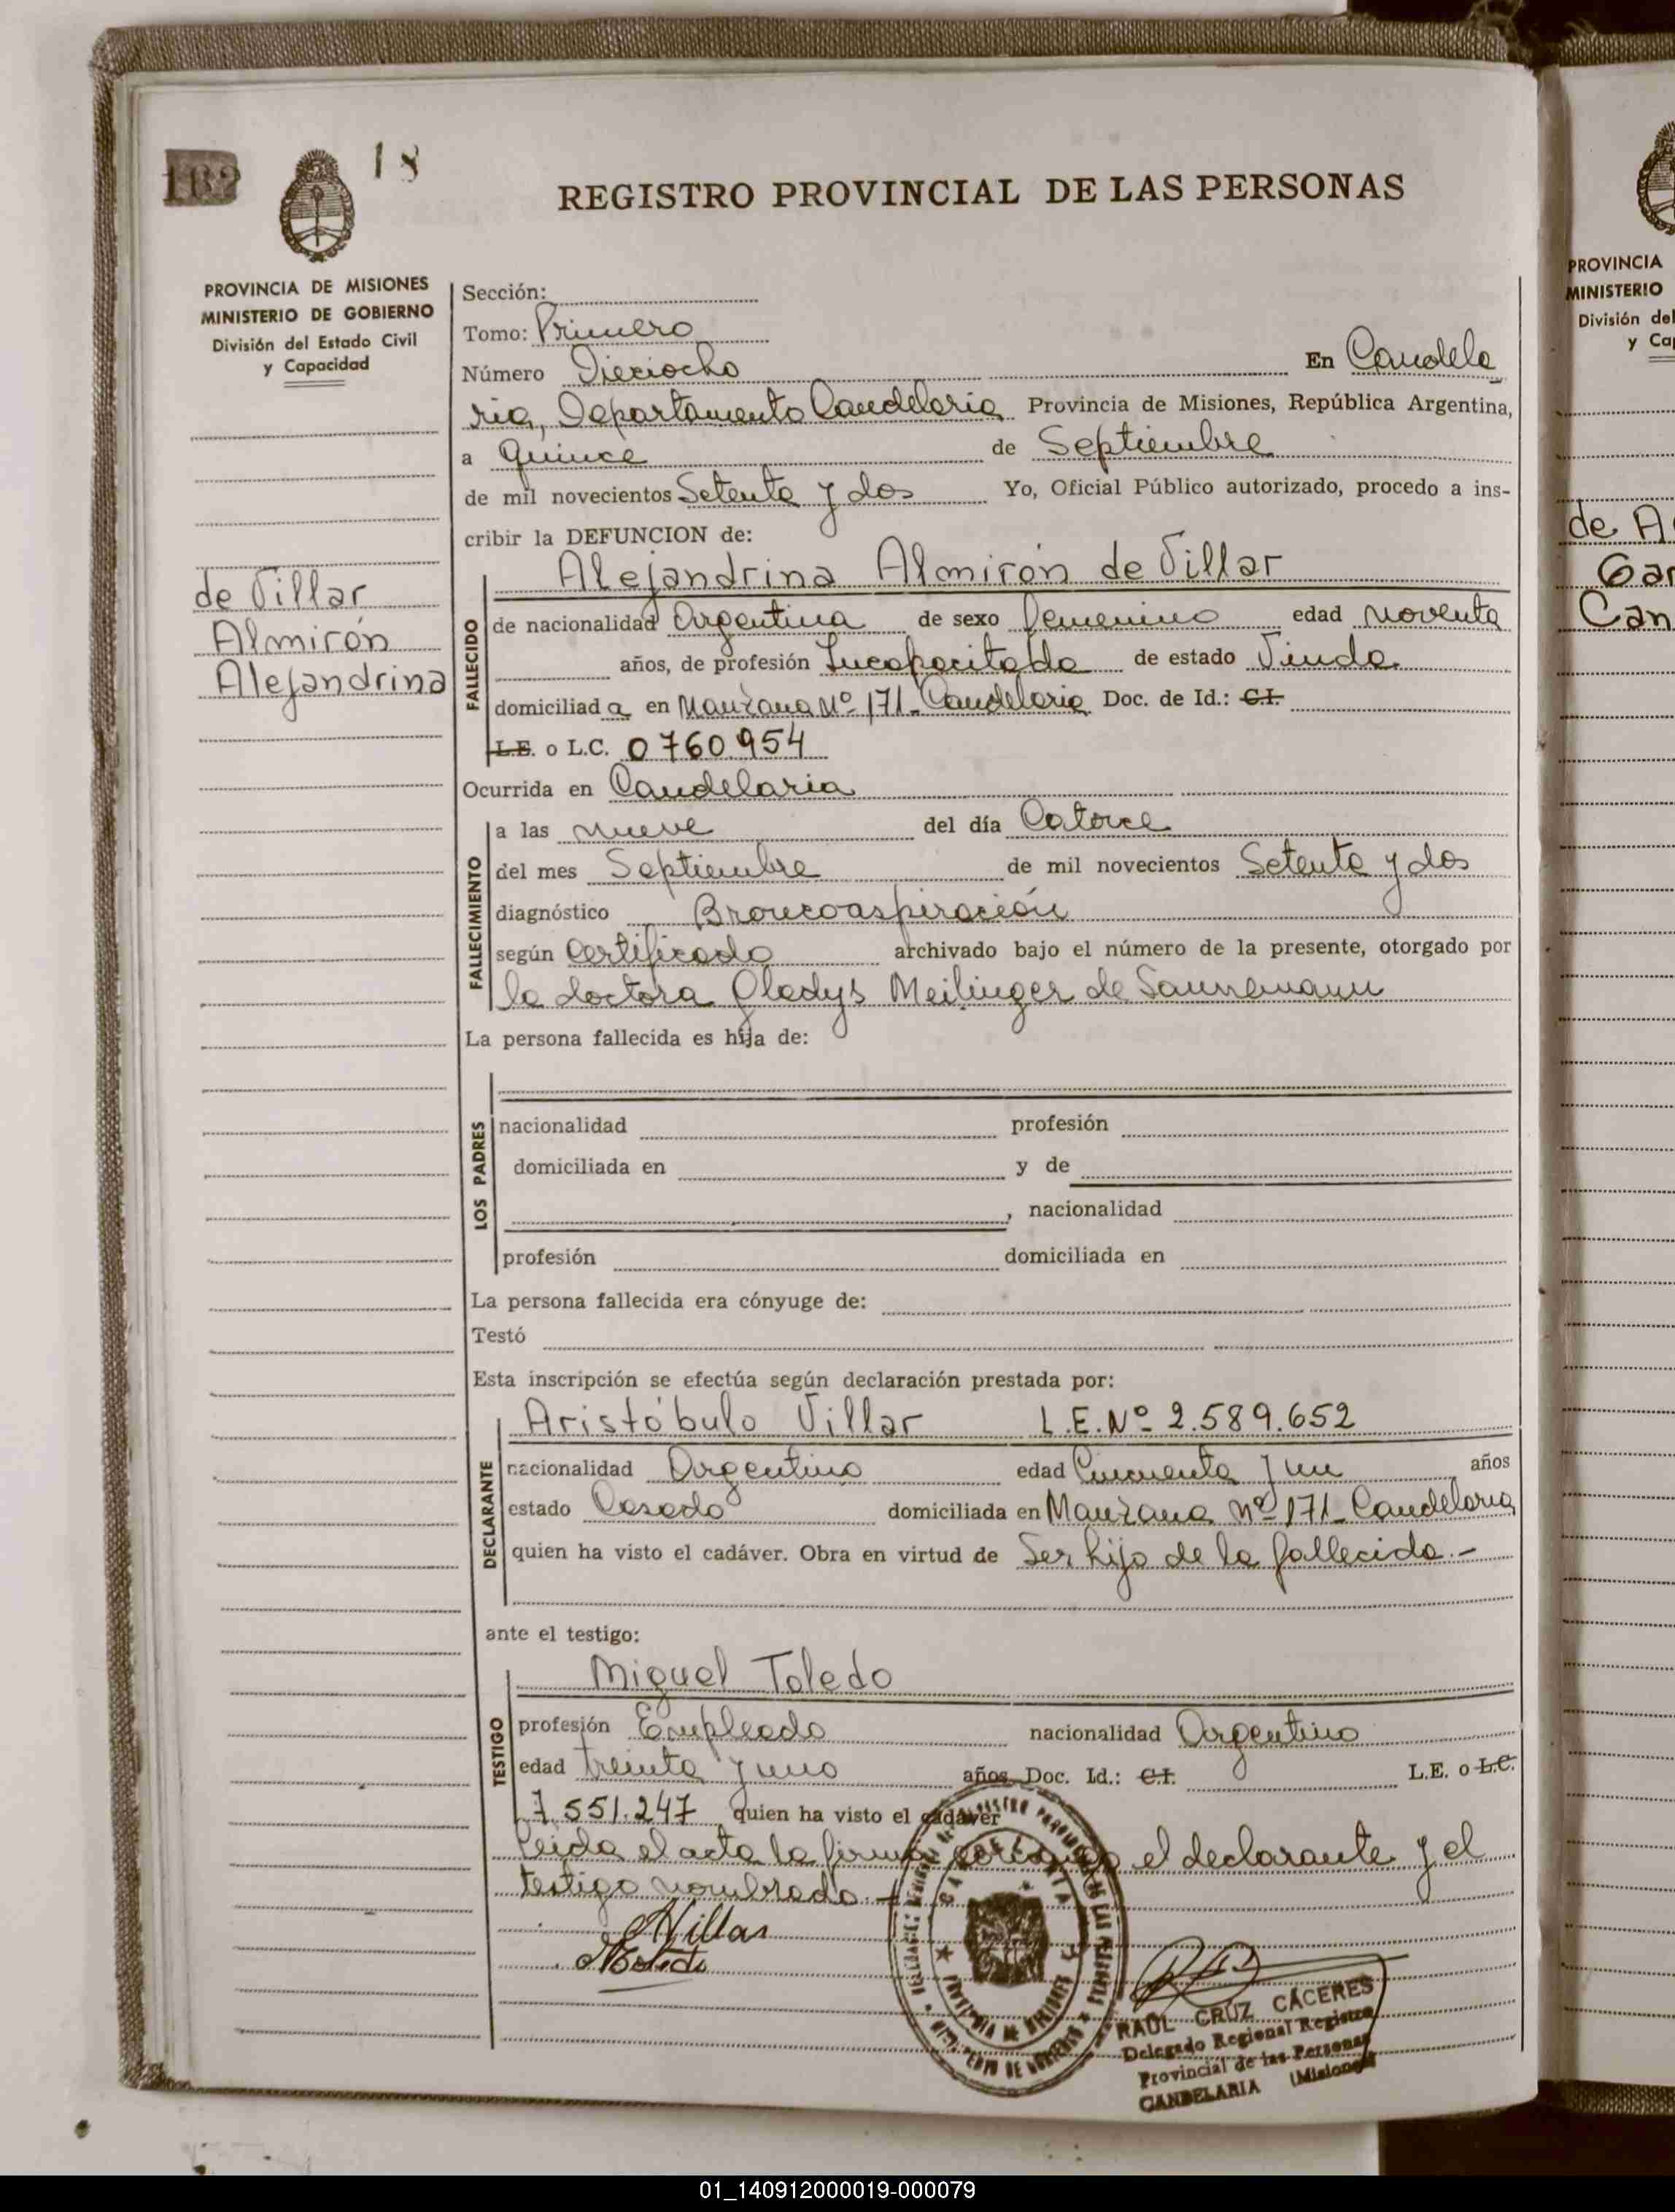 182
18
REGISTRO PROVINCIAL DE LAS PERSONAS
PROVINCIA DE MISIONES
MINISTERIO DE GOBIERNO
División del Estado Civil
y Capacidad
de Villar
Almirón
Alejandrina
Sección:
Tomo: Primero
Número Dieciocho En Candela
ria, Departamento Candelaria Provincia de Misiones, República Argentina,
a quince de Septiembre
de mil novecientos Setenta y dos Yo, Oficial Público autorizado, procedo a ins-
cribir la DEFUNCION de:
Alejandrina Almirón de Villar
FALLECIDO
de nacionalidad Argentina de sexo femenino edad noventa
años, de profesión Incapacitada de estado Viuda
domiciliad a en Manzana Nº 171 - Candelaria Doc. de Id.: C.I.
L.E. o L.C. 0760.954
Ocurrida en Candelaria
FALLECIMIENTO
a las nueve del día Catorce
del mes Septiembre de mil novecientos Setenta y dos
diagnóstico Broncoaspiración
según Certificado archivado bajo el número de la presente, otorgado por
la doctora Gladys Meilinger de Sannemann
La persona fallecida es hija de:
LOS PADRES
nacionalidad profesión
domiciliada en y de
, nacionalidad
profesión domiciliada en
La persona fallecida era cónyuge de:
Testó
Esta inscripción se efectúa según declaración prestada por:
Aristóbulo Villar L.E.Nº 2.589.652
DECLARANTE
nacionalidad Argentino edad Cincuenta y un años
estado Casado domiciliada en Manzana nº 171 - Candelaria
quien ha visto el cadáver. Obra en virtud de Ser hijo de la fallecida.-
ante el testigo:
Miguel Toledo
TESTIGO
profesión Empleado nacionalidad Argentino
edad treinta y uno años Doc. Id.: C.I. L.E. o L.C.
7.551.247 quien ha visto el cadáver
Leida el acta la firman conmigo el declarante y el
testigo nombrado.-
AVillar
MToledo
CANDELARIA
PROVINCIA DE MISIONES
RAUL CRUZ CÁCERES
Delegado Regional Registro
Provincial de las Personas
CANDELARIA (Misiones)
PROVINCIA
MINISTERIO
División del
y Ca
de A
Gar
Can
01_140912000019-000079